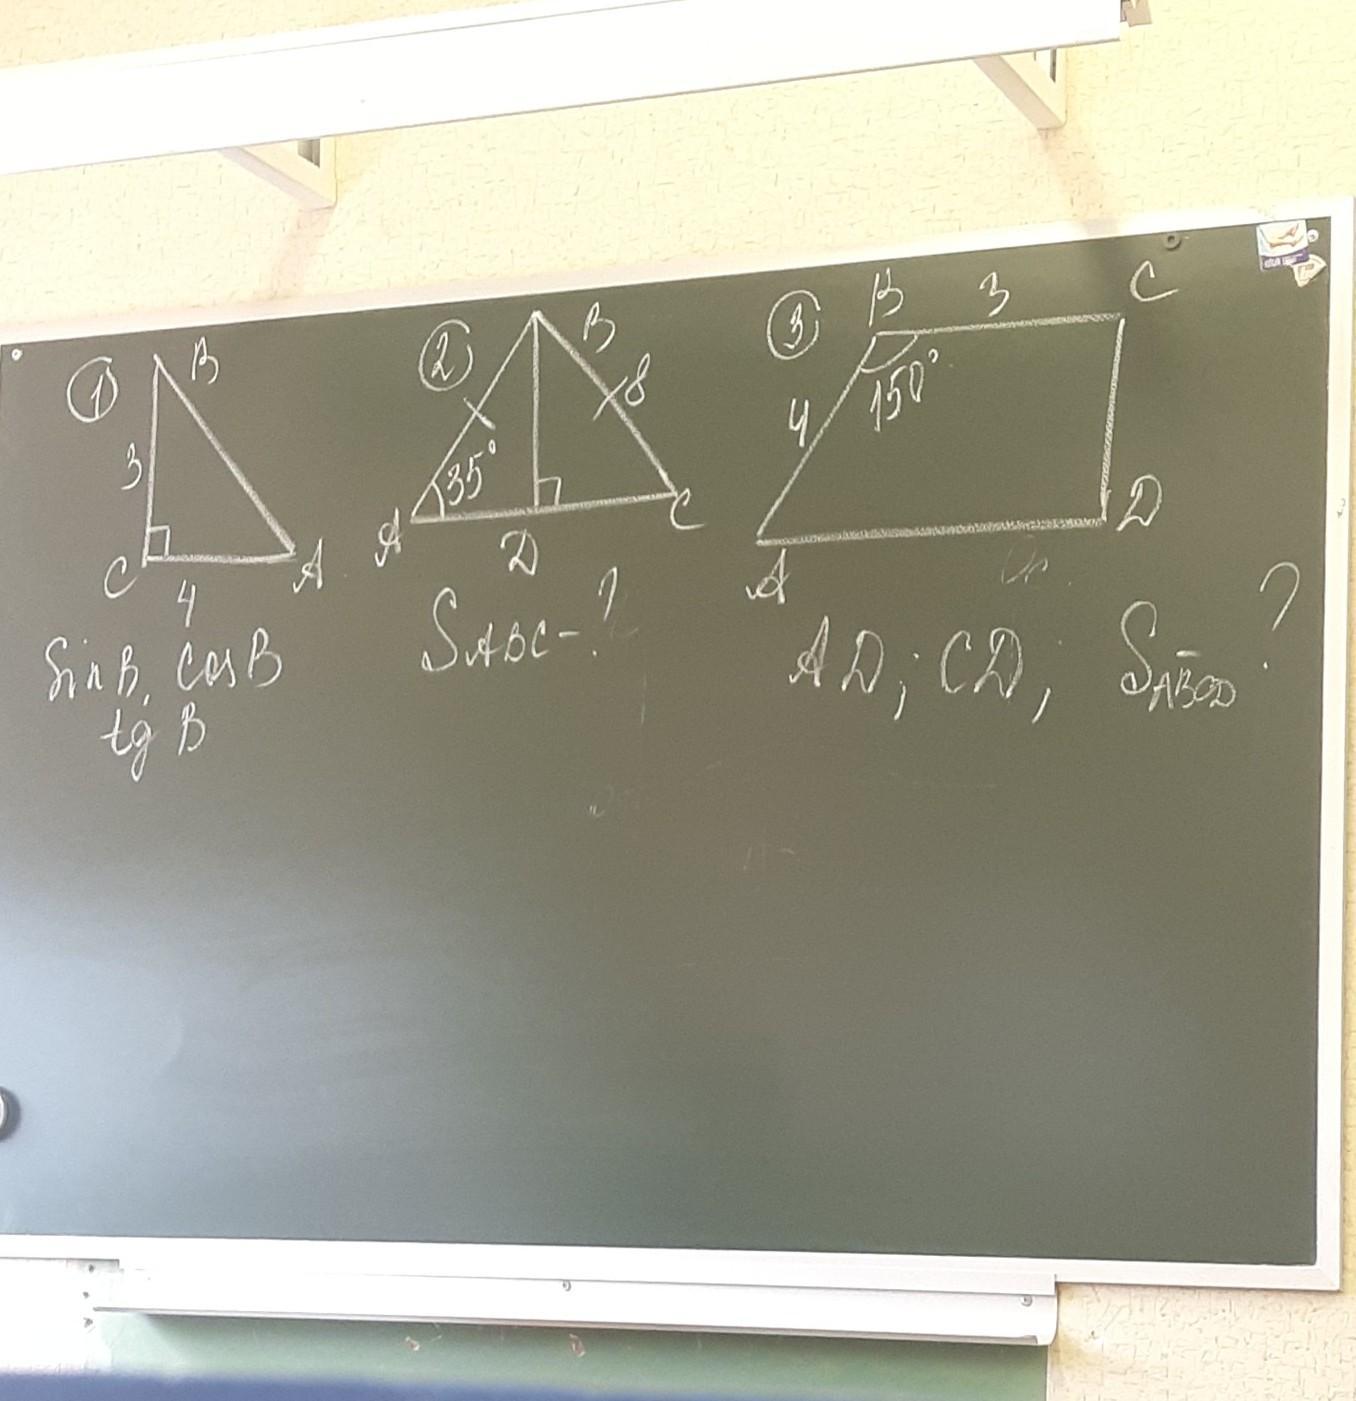 ① B
3
C 4 A
sin B, cos B
tg B
② B
8
35°
A D C
S ABC - ?
③ B 3 C
4 150°
A D
AD; CD; S ABCD - ?